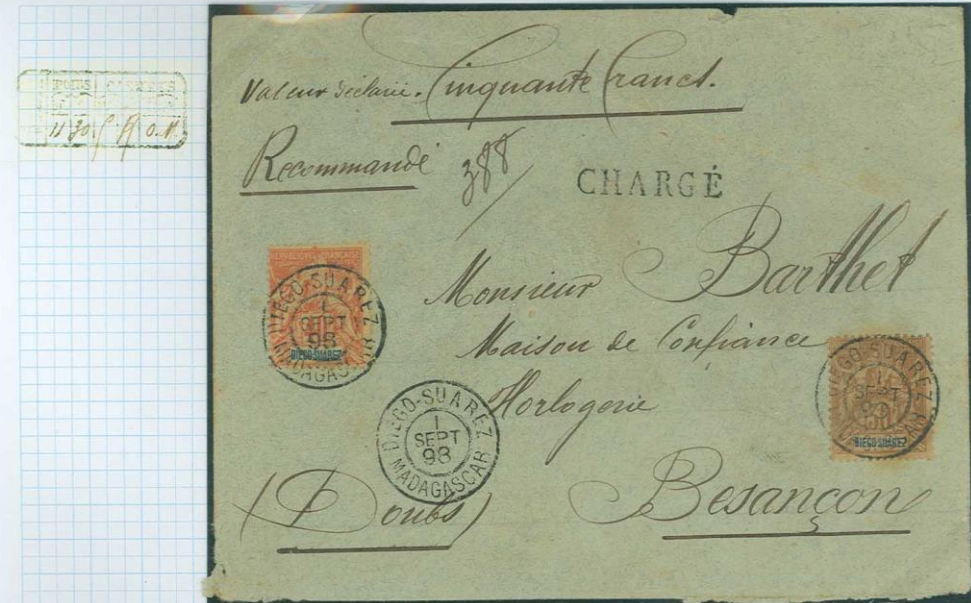 Valeur déclarée. Cinquante Francs.
Recommandé
388
CHARGÉ
Monsieur Barthet
Maison de Confiance
Horlogerie
Besançon
(Doubs)
RÉPUBLIQUE FRANÇAISE
DIEGO-SUAREZ
1
SEPT
98
MADAGASCAR
DIEGO-SUAREZ
DIEGO-SUAREZ
1
SEPT
98
MADAGASCAR
DIEGO-SUAREZ
1
SEPT
DIEGO-SUAREZ